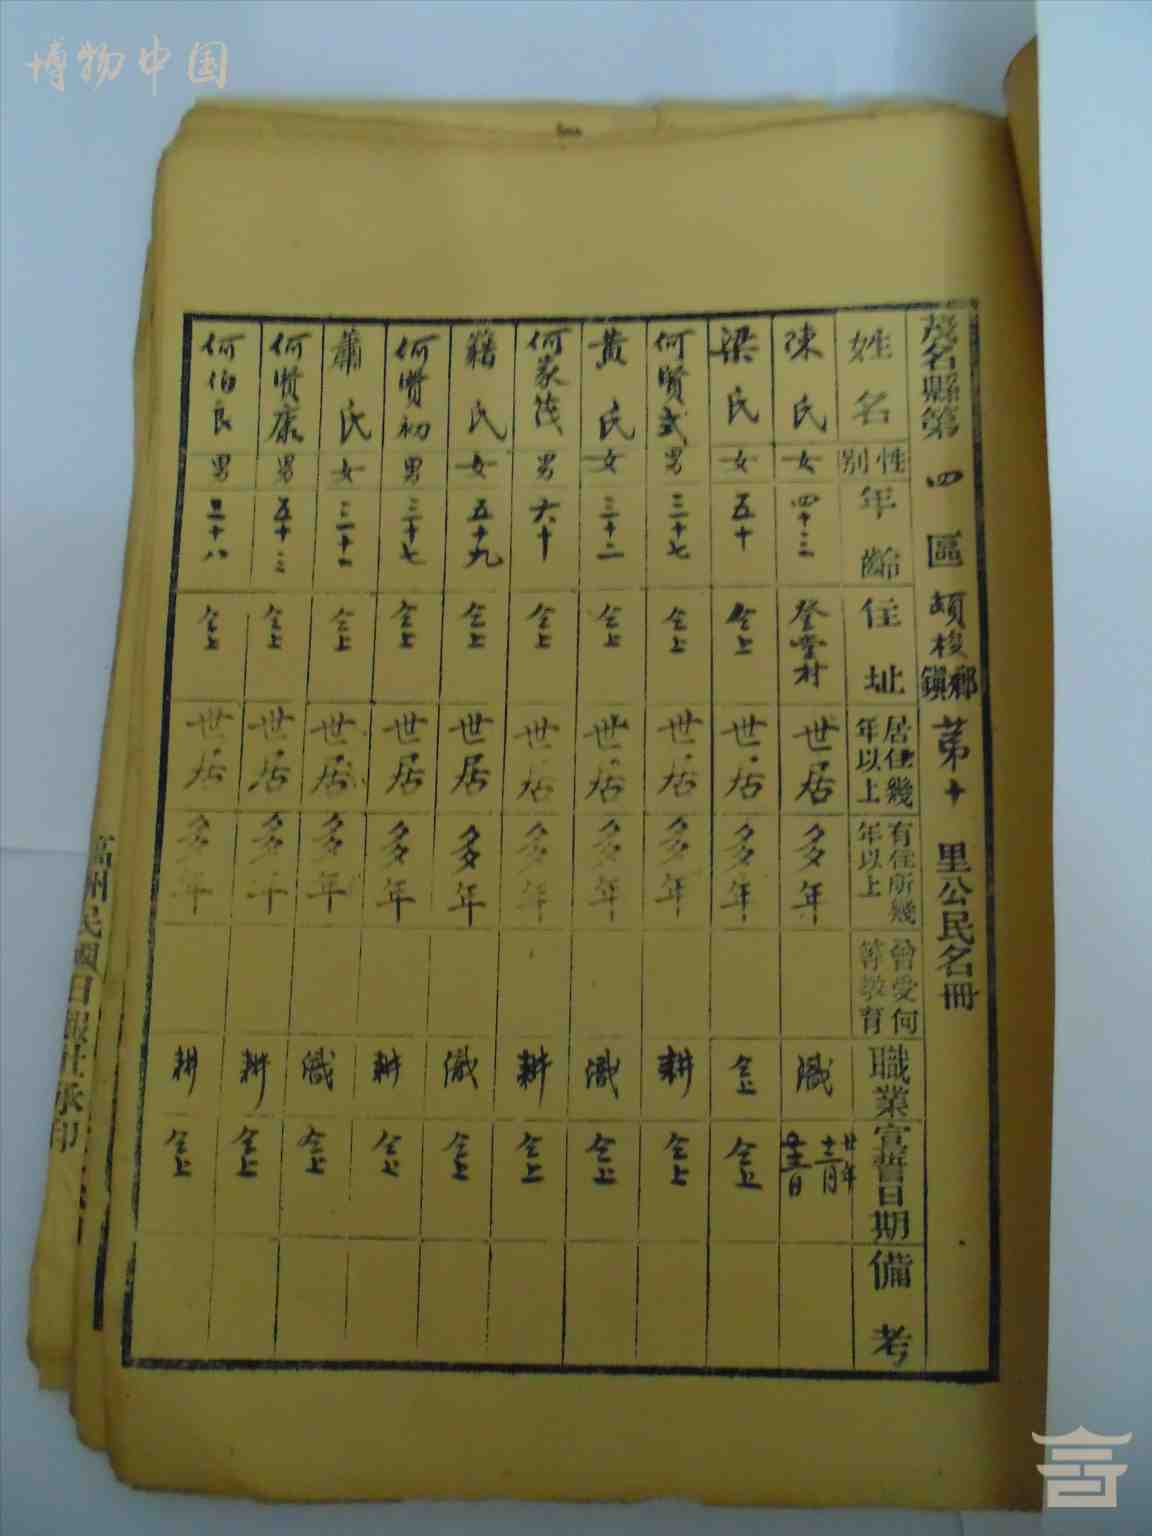 博物中国
茂名縣第四區頓梭鄉鎮第十里公民名冊
姓名 性別 年齡 住址 居住幾年以上 有住所幾年以上 曾受何等教育 職業 宣誓日期 備考
陳氏 女 四十三 登堂村 世居 多年 職 廿年十二月
梁氏 女 五十 仝上 世居 多年 仝上 仝上
何賢武 男 三十七 仝上 世居 多年 耕 仝上
黃氏 女 三十二 仝上 世居 多年 職 仝上
何家茂 男 六十 仝上 世居 多年 耕 仝上
籍氏 女 五十九 仝上 世居 多年 職 仝上
何賢初 男 三十七 仝上 世居 多年 耕 仝上
蕭氏 女 三十一 仝上 世居 多年 職 仝上
何賢康 男 五十三 仝上 世居 多年 耕 仝上
何伯良 男 三十八 仝上 世居 多年 耕 仝上
高州民國日報社承印